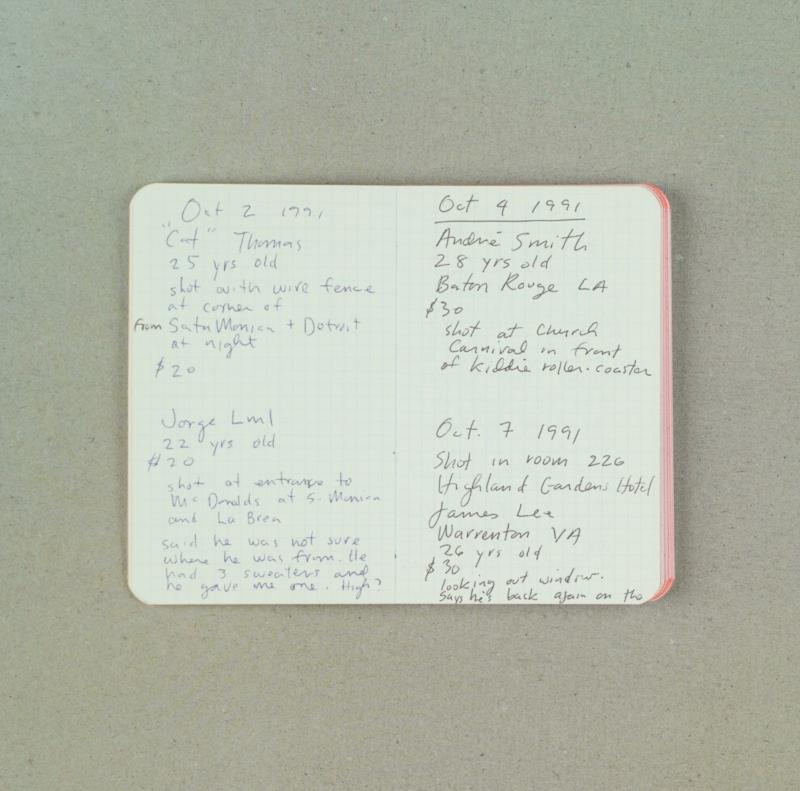 Oct 2 1991
"Cat" Thomas
25 yrs old
shot with wire fence
at corner of
from Satn Monica + Detroit
at night
$20
Jorge
22 yrs old
$20
shot at entrance to
McDonalds at S. Monica
and La Brea
said he was not sure
where he was from. He
had 3 sweaters and
he gave me one. High?
Oct 4 1991
André Smith
28 yrs old
Baton Rouge LA
$30
shot at Church
Carnival in front
of kiddie roller-coaster
Oct. 7 1991
Shot in room 226
Highland Gardens Hotel
James Lee
Warrenton VA
26 yrs old
$30
looking out window.
Says he's back again on the